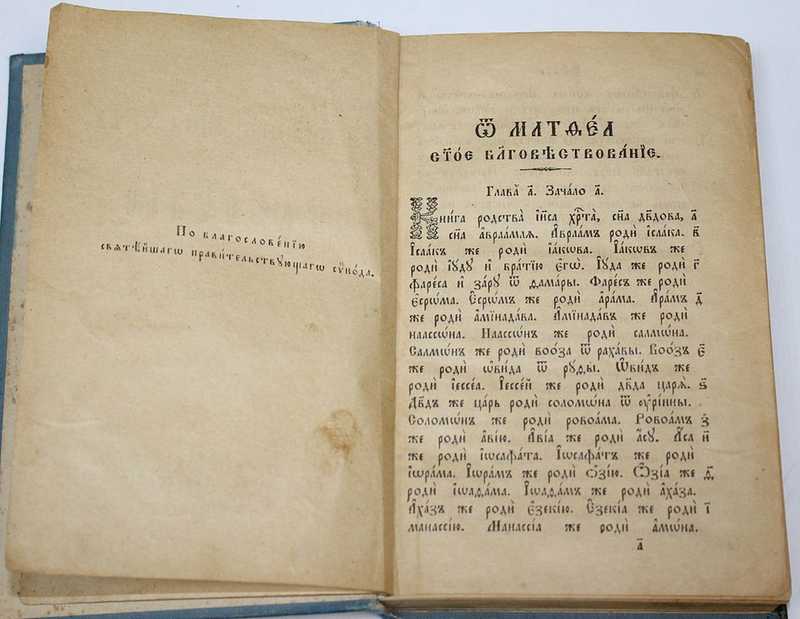 По благослове́нїю
свѧтѣ́йшагѡ прави́тельствꙋющагѡ сѷно́да.
Ѿ МАТѲЕ́А
СТ҃О́Е БЛ҃ГОВѢСТВОВА́НЇЕ.
Глава̀ а҃. Зача́ло а҃.
Кни́га родства̀ і҆и҃са хрⷭ҇та̀, сн҃а дв҃дова, а҃
сн҃а а҆враа́млѧ. А҆враа́мъ родѝ і҆саа́ка. в҃
І҆саа́къ же родѝ і҆а́кѡва. І҆а́кѡвъ же
родѝ і҆ꙋ́дꙋ и҆ бра́тїю є҆гѡ̀. І҆ꙋ́да же родѝ г҃
фаре́са и҆ за́рꙋ ѿ ѳама́ры. Фаре́съ же родѝ
є҆срѡ́ма. Є҆срѡ́мъ же родѝ а҆ра́ма. А҆ра́мъ д҃
же родѝ а҆мїнада́ва. А҆мїнада́въ же родѝ
наассѡ́на. Наассѡ́нъ же родѝ салмѡ́на.
Салмѡ́нъ же родѝ воо́за ѿ раха́вы. Воо́зъ є҃
же родѝ ѡ҆ви́да ѿ рꙋ́ѳы. Ѡ҆ви́дъ же
родѝ і҆ессе́а. І҆ессе́й же родѝ дв҃да царѧ̀. ѕ҃
Дв҃дъ же ца́рь родѝ соломѡ́на ѿ ᲂу҆рі́ины.
Соломѡ́нъ же родѝ ровоа́ма. Ровоа́мъ з҃
же родѝ а҆ві́ю. А҆ві́а же родѝ а҆́сꙋ. А҆́са и҃
же родѝ і҆ѡсафа́та. І҆ѡсафа́тъ же родѝ
і҆ѡра́ма. І҆ѡра́мъ же родѝ ѻ҆зі́ю. Ѻ҆зі́а же ѳ҃
родѝ і҆ѡаѳа́ма. І҆ѡаѳа́мъ же родѝ а҆ха́за.
А҆ха́зъ же родѝ є҆зекі́ю. Є҆зекі́а же родѝ і҃
манассі́ю. Манассі́а же родѝ а҆мѡ́на.
а҃